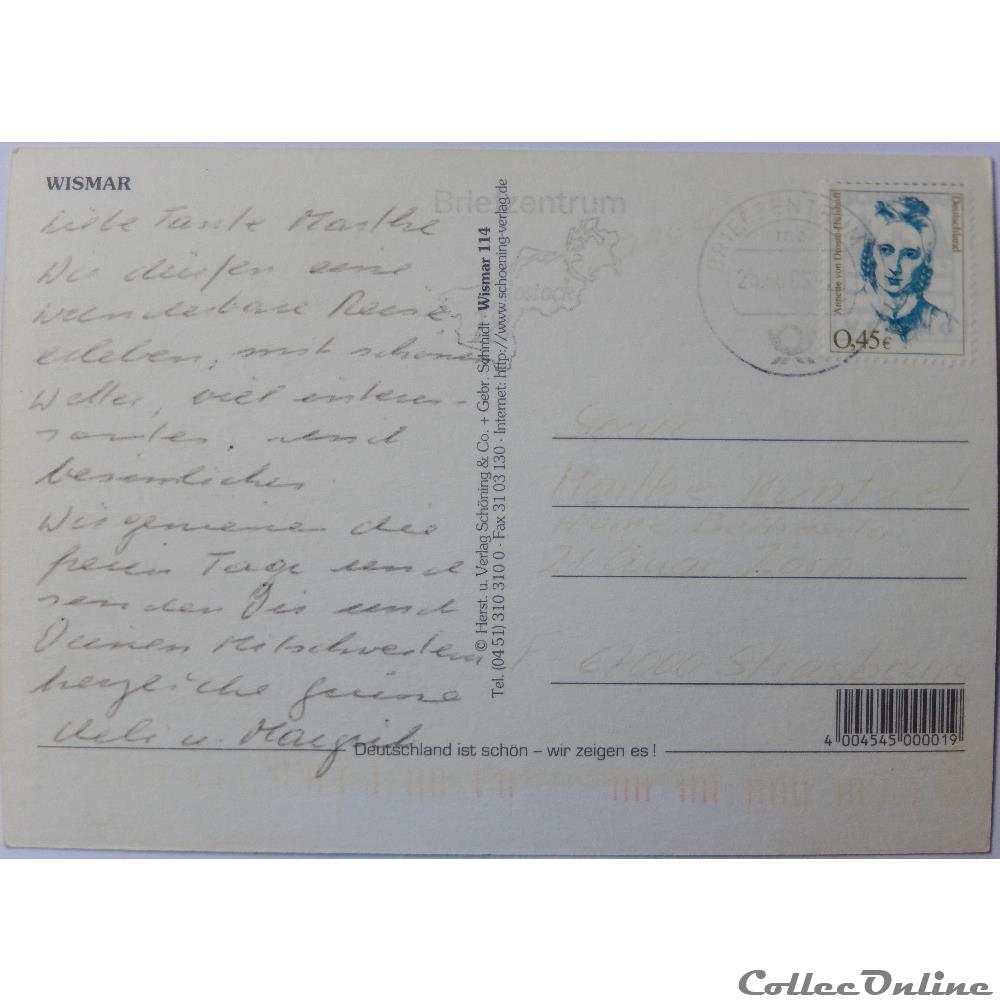 WISMAR
Liebe Tante Marthe
Wir dürfen eine
wunderbare Reise
erleben, mit schönem
Wetter, viel interes-
santes und
besinnliches
Wir geniessen die
freien Tage und
senden Dir und
Deinen Mitschwestern
herzliche Grüsse
u. Margrit
© Herst. u. Verlag Schöning & Co. + Gebr. Schmidt · Wismar 114
Tel. (04 51) 310 310 0 · Fax 31 03 130 · Internet: http://www.schoening-verlag.de
Briefzentrum
Rostock
BRIEFZENTRUM
Deutschland
Annette von Droste-Hülshoff
0,45€
Soeur
Marthe
F 67000 Strasbourg
4 004545 000019
Deutschland ist schön – wir zeigen es !
CollecOnline